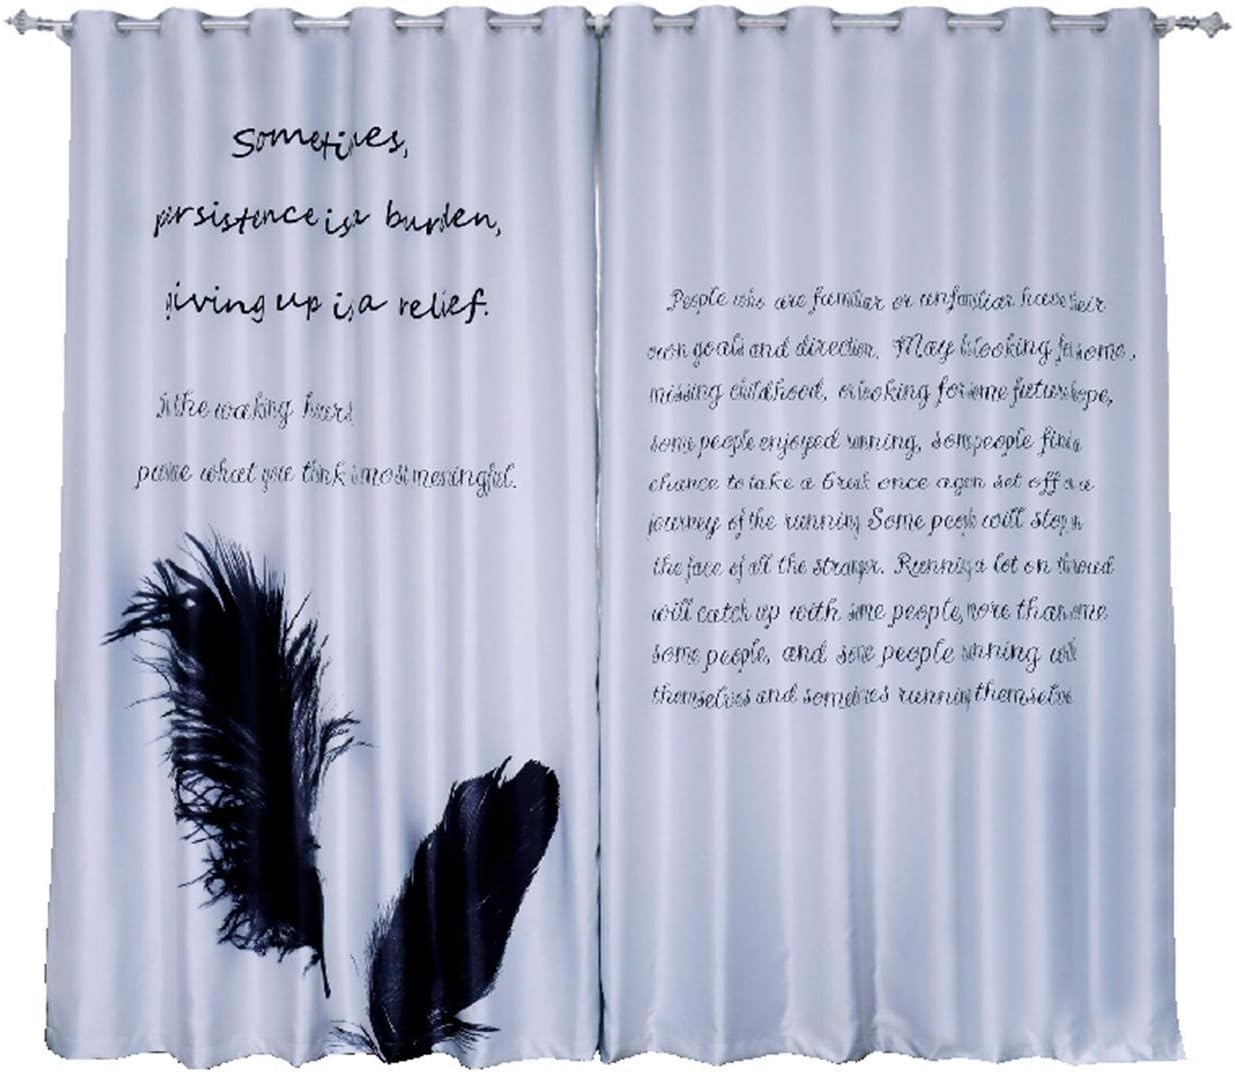 Sometimes,
persistence is a burden,
giving up is a relief.
In the waking hours
pursue what you think is most meaningful.
People who are familiar or unfamiliar have their
own goals and direction. May be looking for some
missing childhood, or looking for some future hope,
some people enjoyed running, some people find a
chance to take a break once again set off on a
journey of the running Some people will stop in
the face of all the stranger. Running a lot on the road
will catch up with some people, more than some
some people, and some people running with
themselves and sometimes running themselves